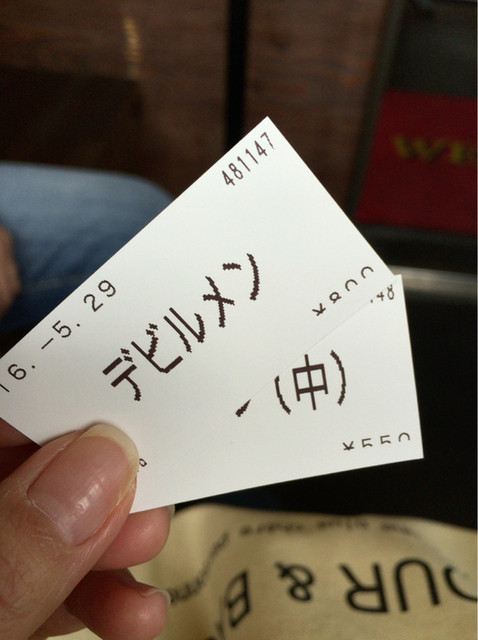 481147
16.-5.29
デビルメン
¥800
(中)
¥550
WE
OUR & B